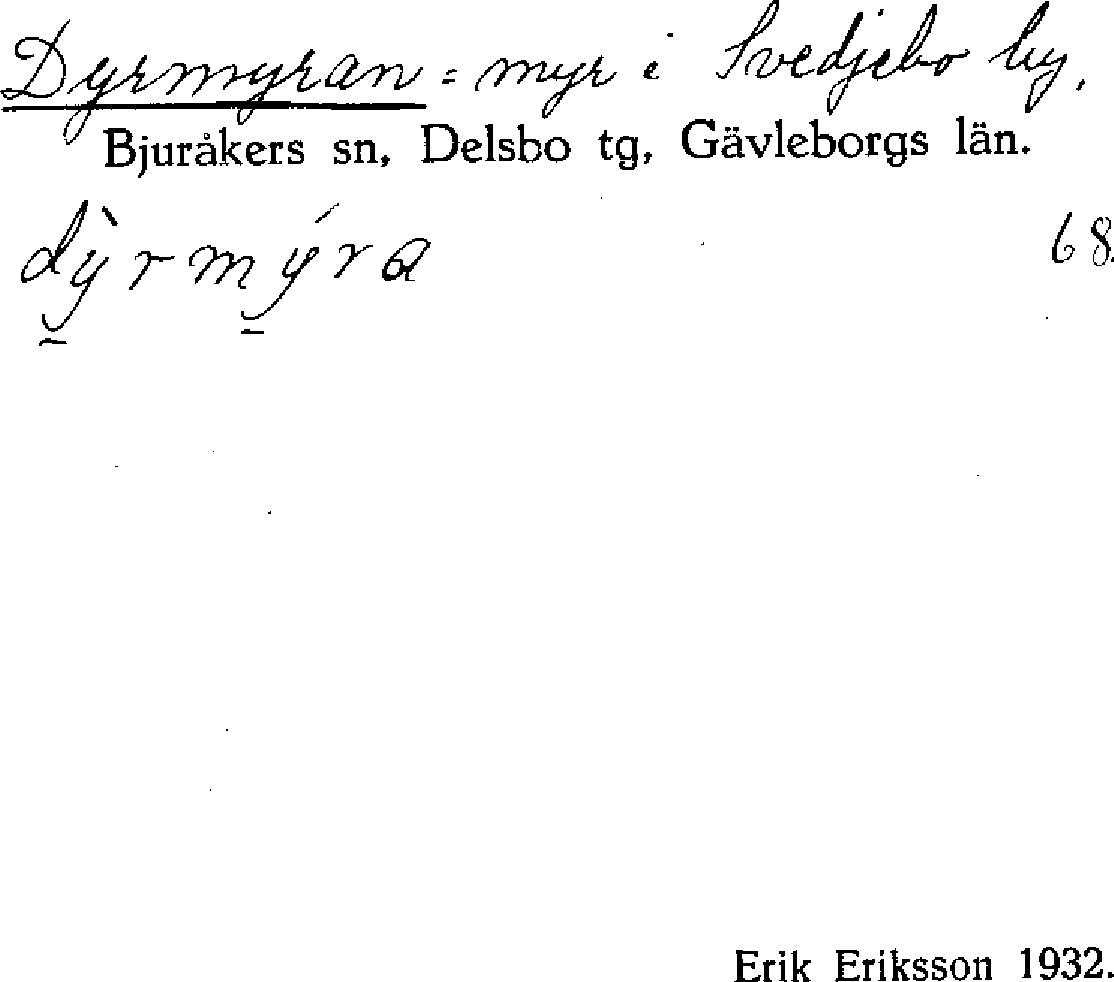 Dyrmyran = myr i Svedjebo by.
Bjuråkers sn, Delsbo tg, Gävleborgs län.
dỳrmýra 68.
Erik Eriksson 1932.